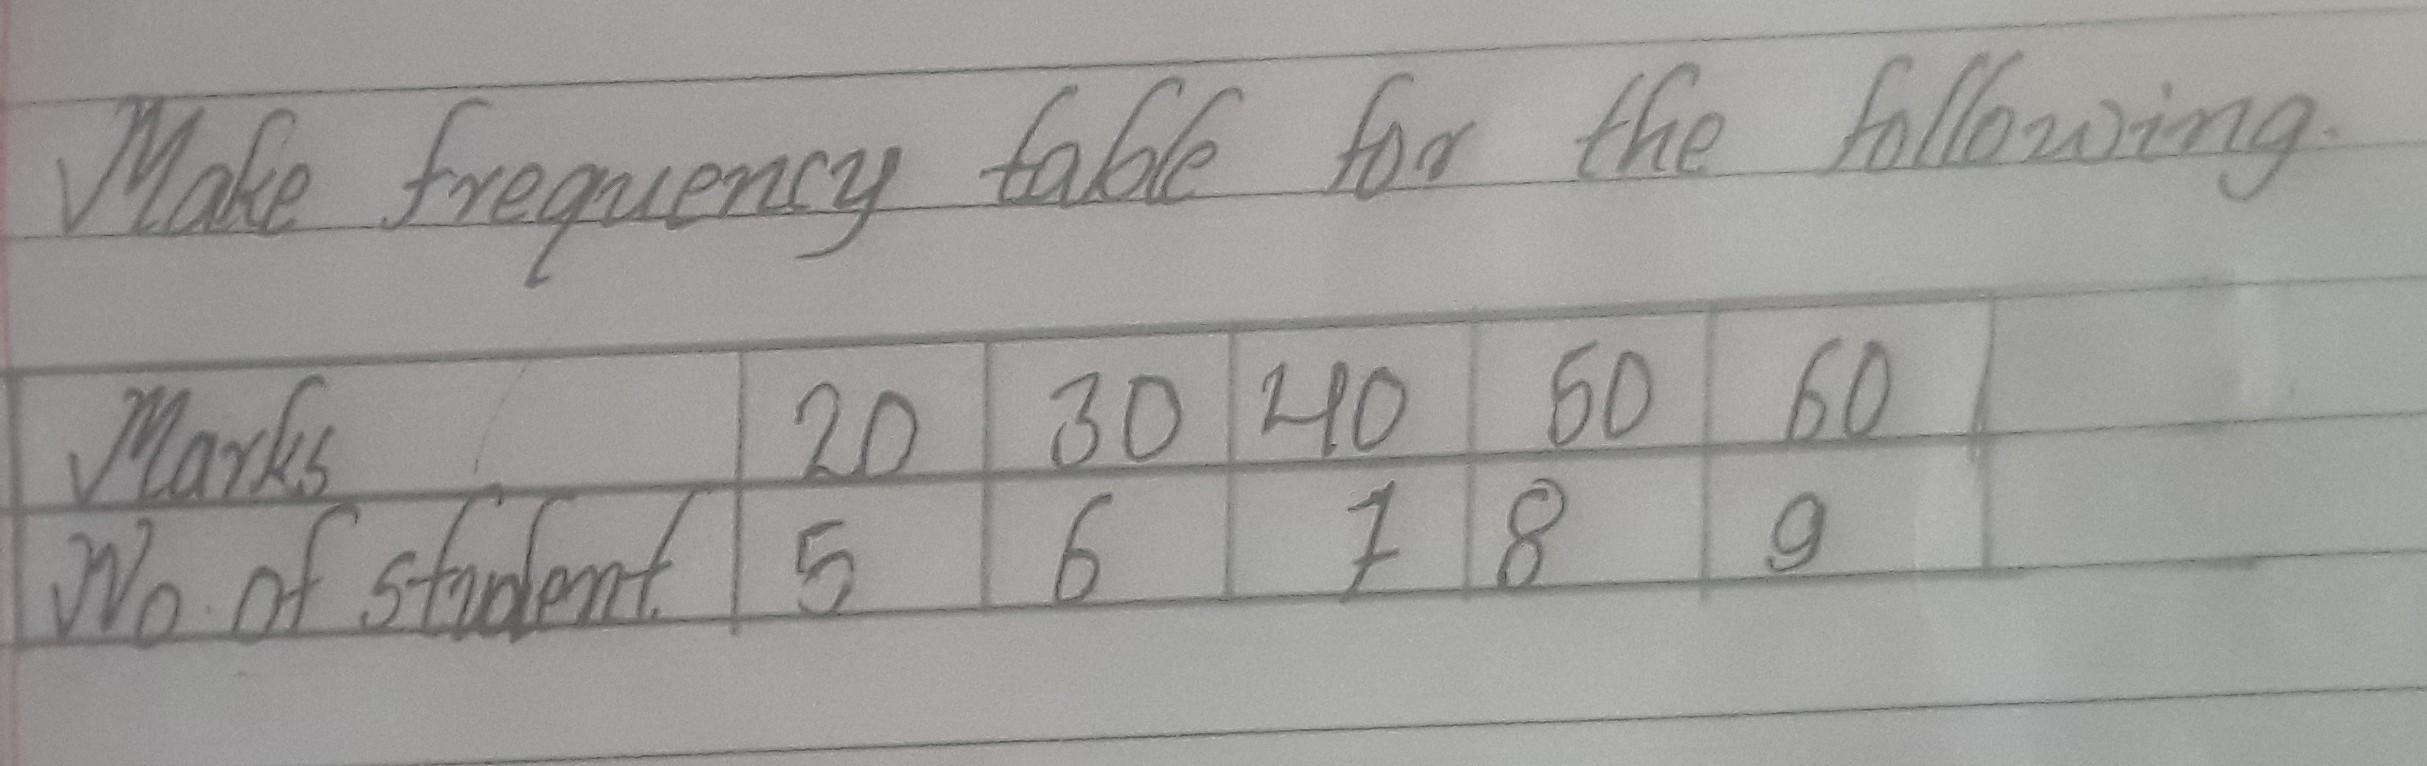 Make frequency table for the following.
Marks 20 30 40 50 60
No. of student 5 6 7 8 9